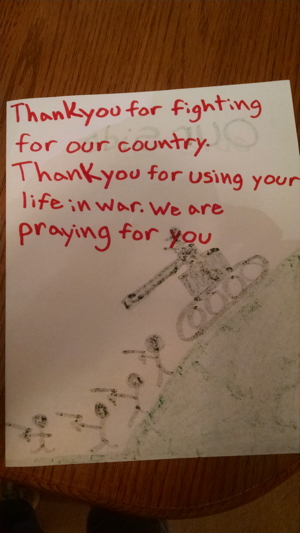 Thankyou for fighting
for our country.
Thankyou for using your
life in war. We are
praying for you